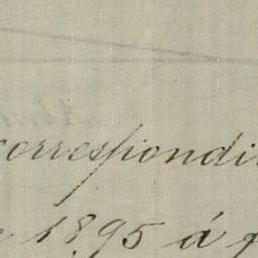 correspondi
1895 á